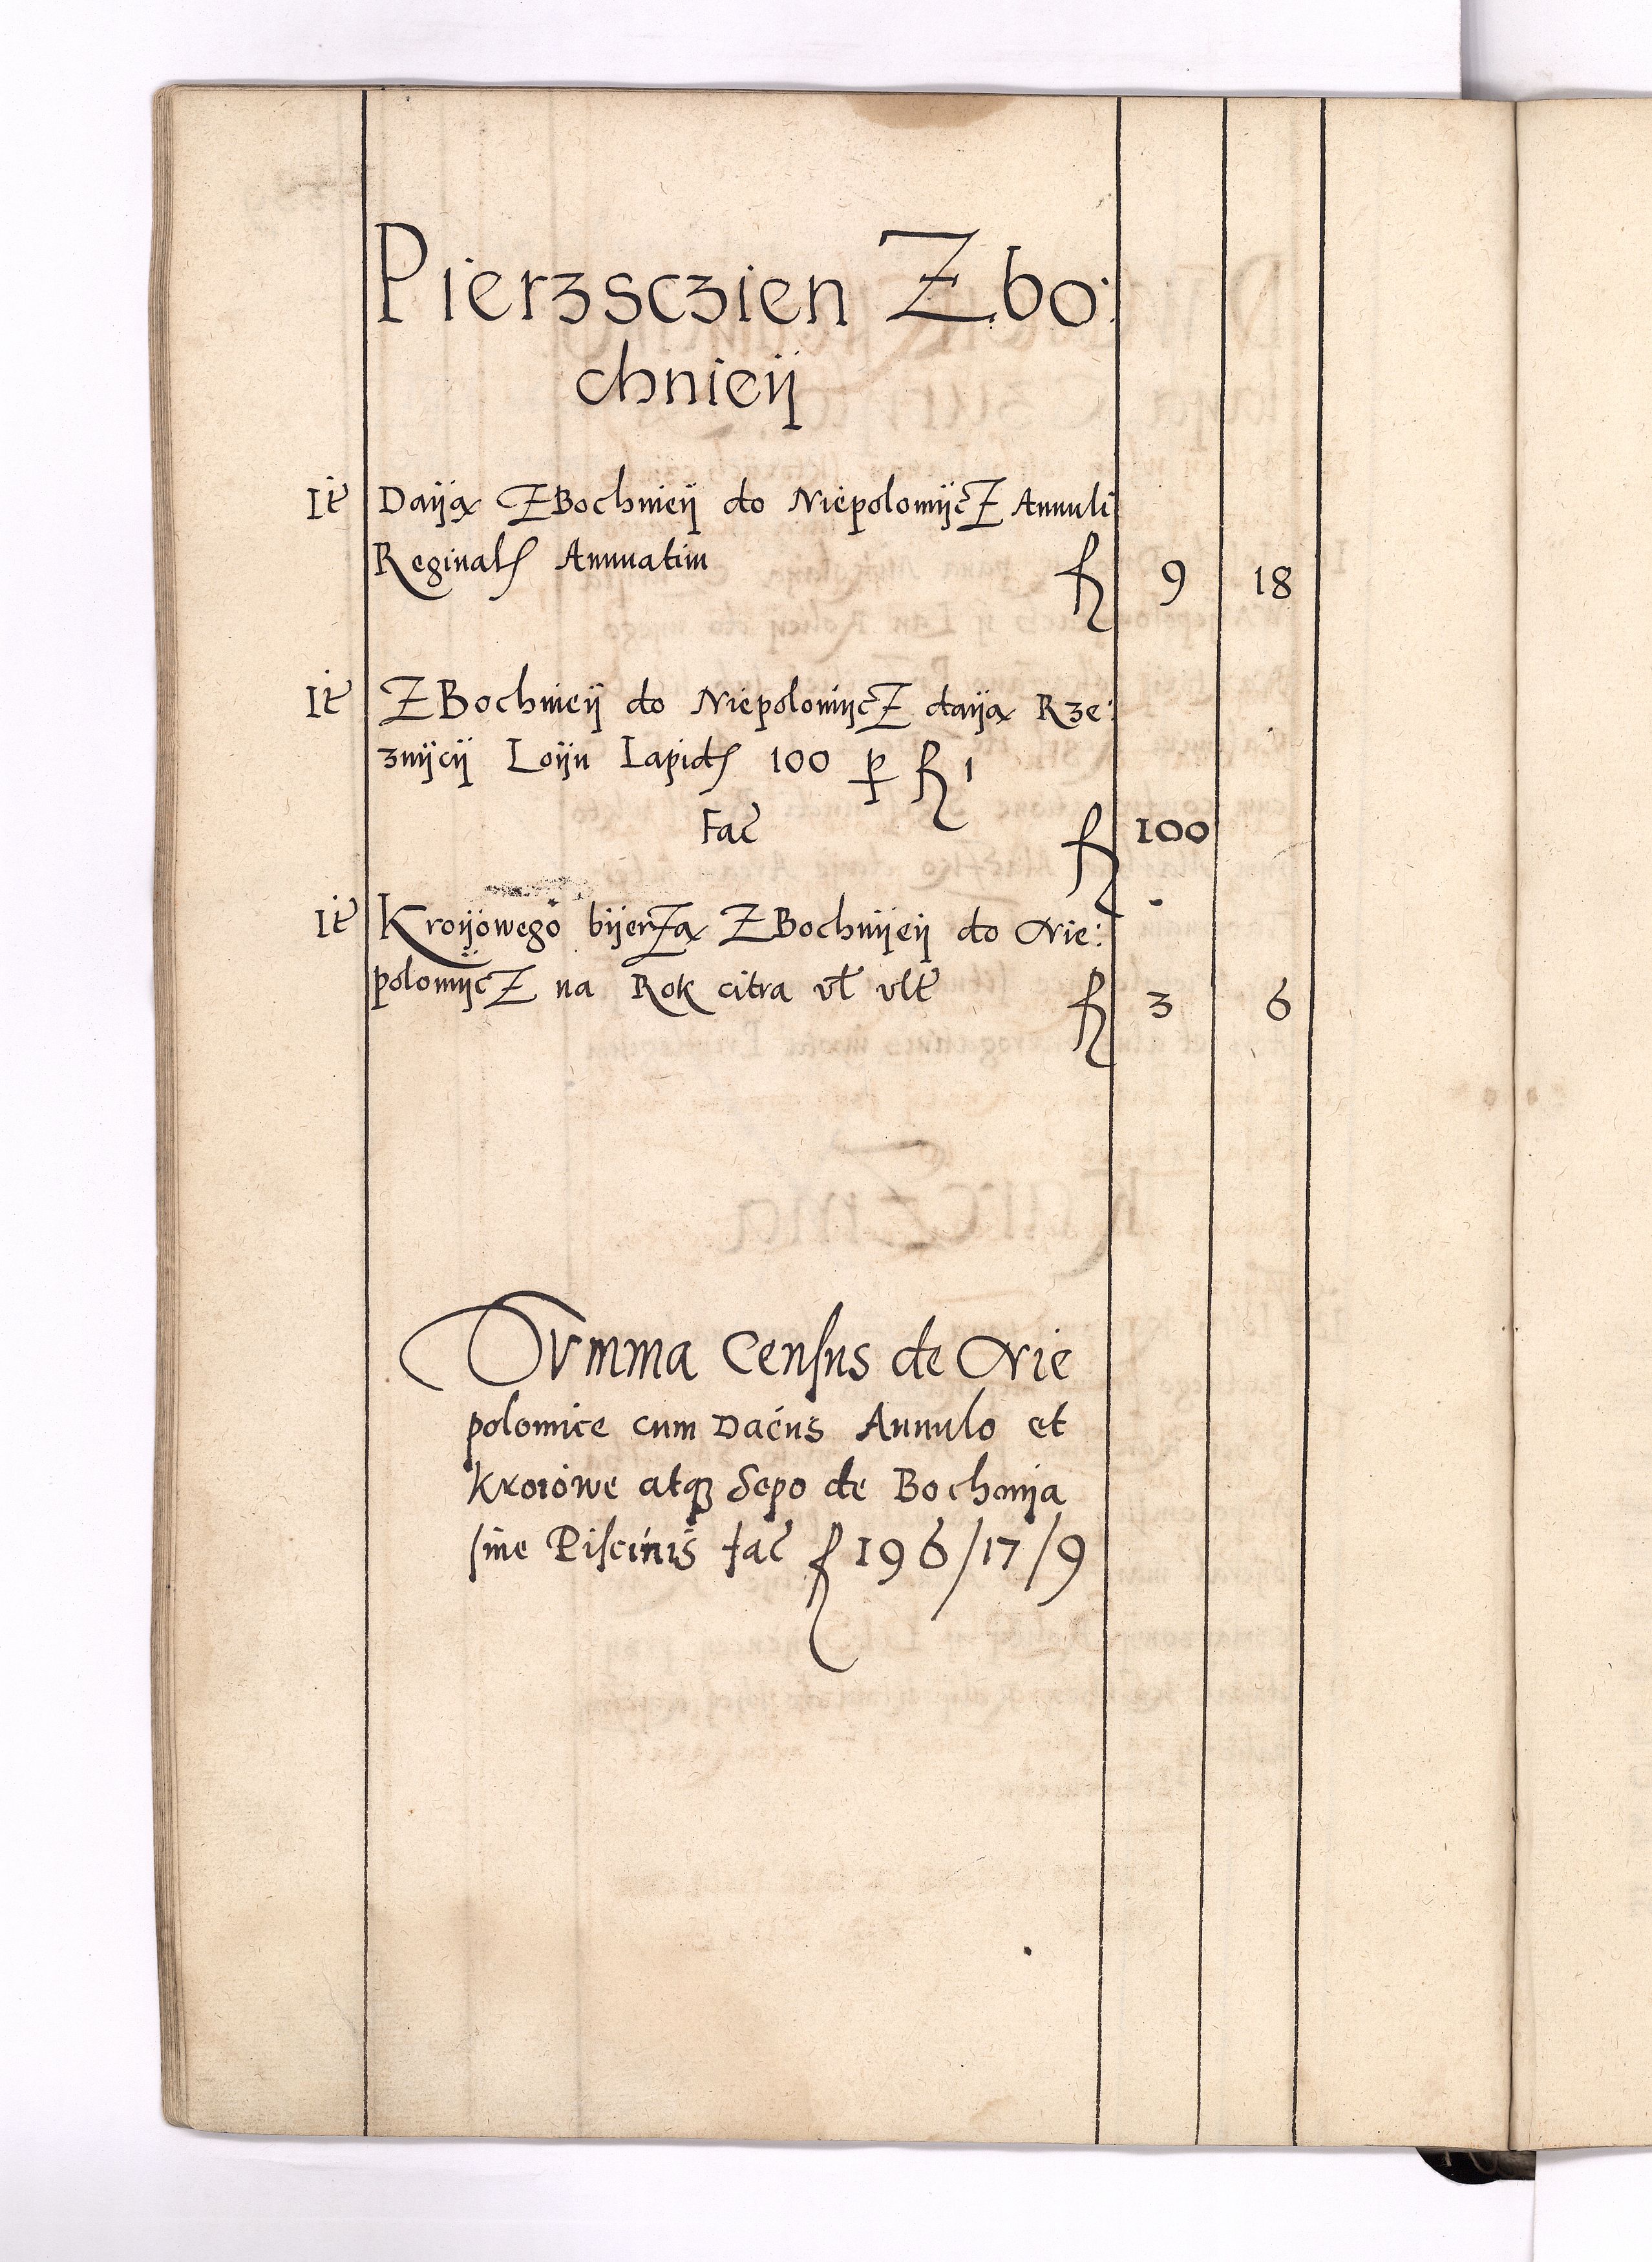 Pierzsczien Z bo:
chnieÿ
It Daÿą Z Bochnieÿ do NiepolomÿcZ Annuli
Reginal Annuatim fl 9 18
It Z Bochnieÿ do NiepolomÿcZ daÿą Rze:
znÿcÿ Loÿu Lapid 100 p fl 1
Fac fl 100
It Kroÿowego bÿerZą Z Bochnÿeÿ do Nie:
polomÿcZ na Rok citra vl vlt fl 3 6
Summa Census de Nie
polomice cum Dacus Annulo et
Kroiowe atq Sepo de Bochnÿa
sine Piscinis fac fl 196/17/9